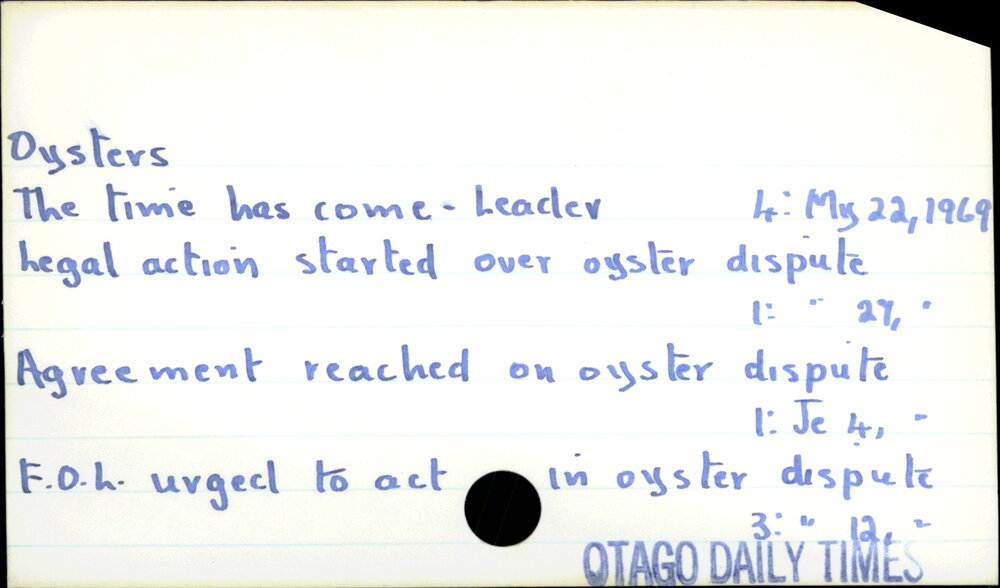 Oysters
The time has come - Leader 4: My 22, 1969
Legal action started over oyster dispute
1: " 27, "
Agreement reached on oyster dispute
1: Je 4, "
F.O.L. urged to act in oyster dispute
3: " 12, "
OTAGO DAILY TIMES